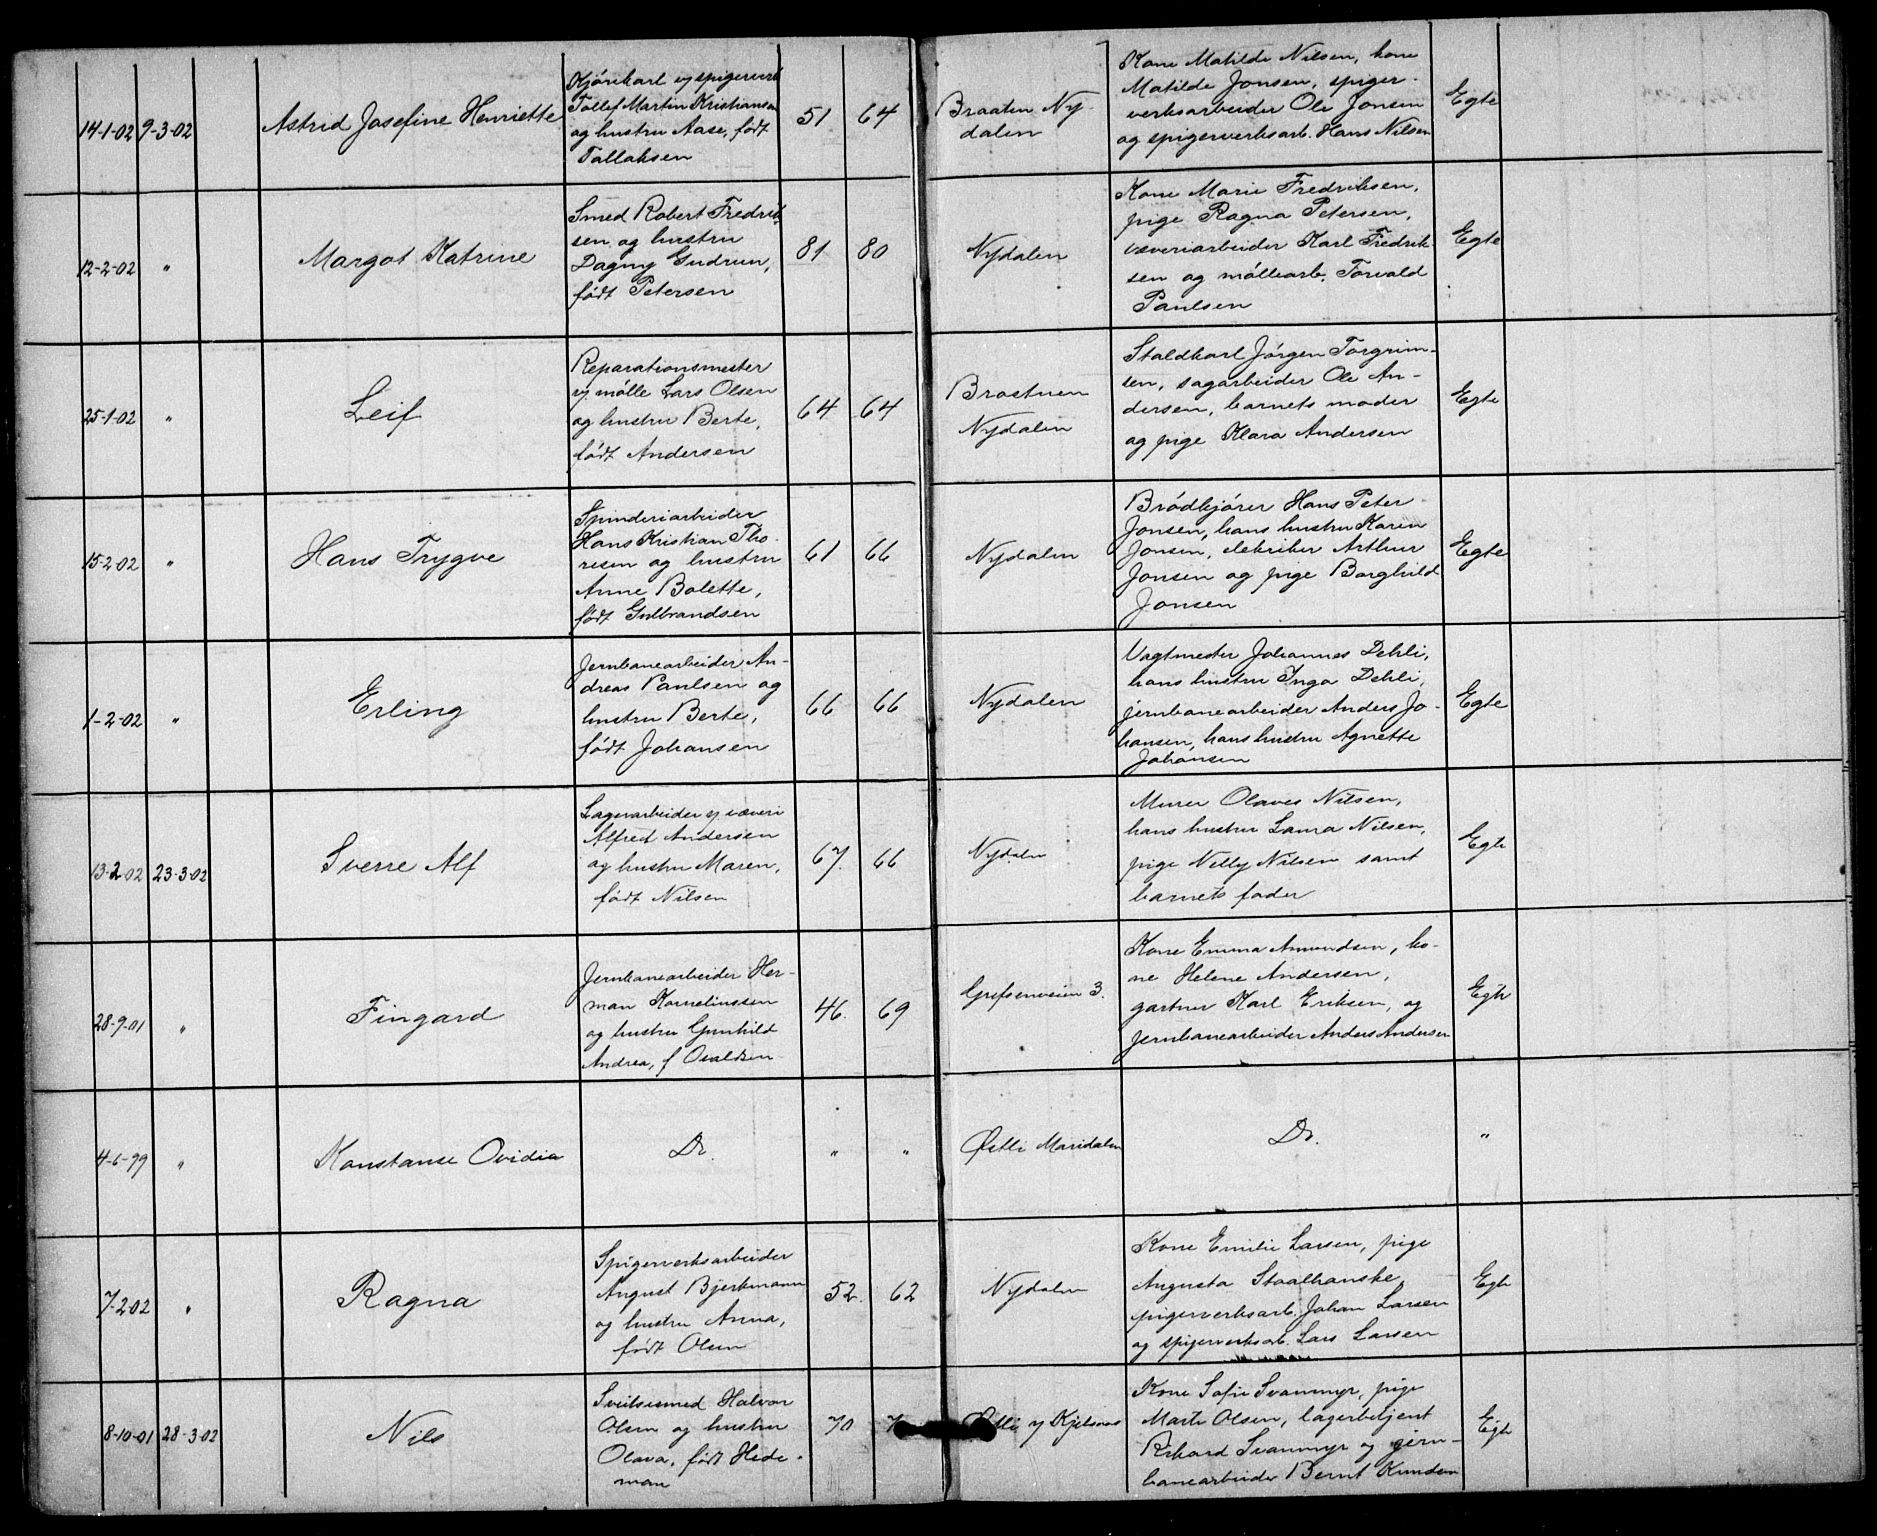 14-1-02 9-3-02
Astrid Josefine Henriette
Kjørekarl v spigerverk
Tollef Martin Kristiansen
og hustru Aase, født
Tallaksen
51 64
Braaten Ny-
dalen
Kone Matilde Nilsen, kone
Matilde Jonsen, spiger-
verksarbeider Ole Jonsen
og spigerverksarb. Hans Nilsen
Egte
12-2-02 "
Margot Katrine
Smed Robert Fredrik-
sen og hustru
Dagny Gudrun,
født Petersen
81 80
Nydalen
Kone Marie Fredriksen,
pige Ragna Petersen,
væveriarbeider Karl Fredrik-
sen og møllearb. Torvald
Paulsen
Egte
25-1-02 "
Leif
Reparationsmester
v. mølle Lars Olsen
og hustru Berte,
født Andersen
64 64
Nydalen
Staldkarl Jørgen Torgrim-
sen, sagarbeider Ole An-
dersen, barnets moder
og pige Klara Andersen
Egte
15-2-02 "
Hans Trygve
Spinderiarbeider
Hans Kristian Tho-
resen og hustru
Anne Bolette,
født Gulbrandsen
61 66
Nydalen
Brødkjører Hans Peter
Jonsen, hans hustru Karen
Jonsen, elektriker Arthur
Jonsen og pige Borghild
Jonsen
Egte
1-2-02 "
Erling
Jernbanearbeider An-
dreas Paulsen og
hustru Berte,
født Johansen
66 66
Nydalen
Vagtmester Johannes Dehli,
hans hustru Inga Dehli,
jernbanearbeider Anders Jo-
hansen, hans hustru Agnette
Johansen
Egte
13-2-02 23-3-02
Sverre Alf
Lagerarbeider v væveri
Alfred Andersen
og hustru Maren,
født Nilsen
67. 66
Nydalen
Murer Olaves Nilsen,
hans hustru Laura Nilsen,
pige Nelly Nilsen samt
barnets fader
Egte
28-9-01 "
Fingard
Jernbanearbeider Her-
man Korneliussen
og hustru Gunhild
Andrea, f Osaldsen
46. 69
Grefsenveien 3.
Kone Emma Amundsen, ko-
ne Helene Andersen,
gartner Karl Eriksen, og
jernbanearbeider Anders Andersen
Egte
4-6-99 "
Konstanse Ovidia
Do.
" "
Østli Maridalen
Do.
"
7-2-02 "
Ragna
Spigerverksarbeider
August Bjerkmann
og hustru Anna,
født Olsen
52. 62
Nydalen
Kone Emilie Larsen, pige
Augusta Staalhanske,
spigerverksarb. Johan Larsen
og spigerverksarb. Lars Larsen
Egte
8-10-01 28-3-02
Nils
Halvor
Olsen og hustru
Olava, født Hede-
man
70 7
v Kjelsaas
Kone Sofie Svanmyr, pige
Marte Olsen, lagerbetjent
Rikard Svanmyr og jern-
banearbeider Bernt Knudsen
Egte